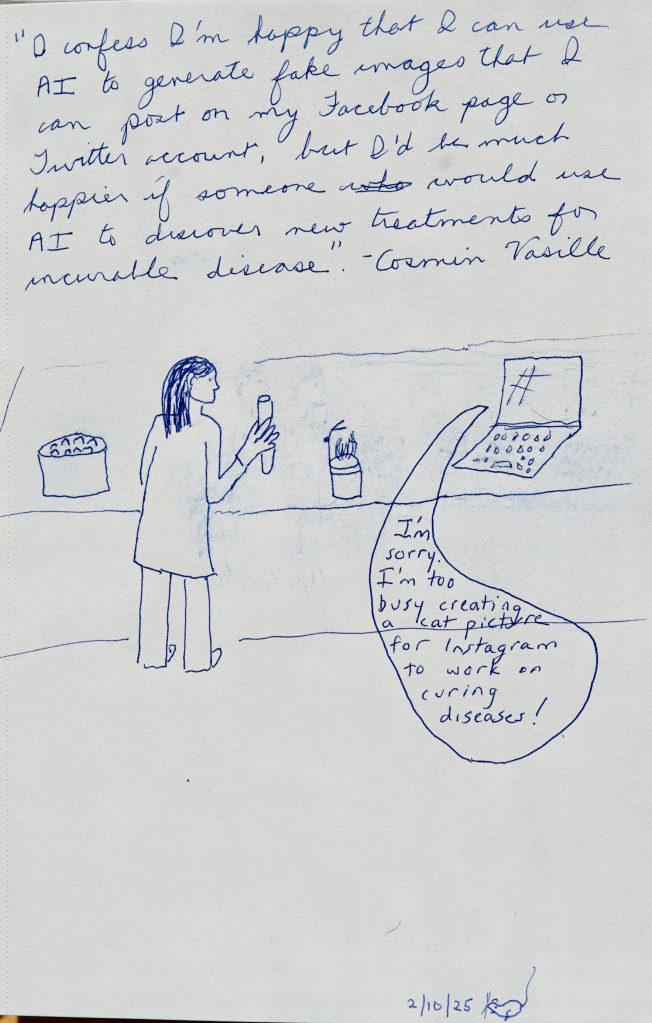 "I confess I'm happy that I can use
AI to generate fake images that I
can post on my Facebook page or
Twitter account, but I'd be much
happier if someone who would use
AI to discover new treatments for
incurable disease". -Cosmin Vasille
#
I'm
sorry.
I'm too
busy creating
a cat picture
for Instagram
to work on
curing
diseases!
2/10/25